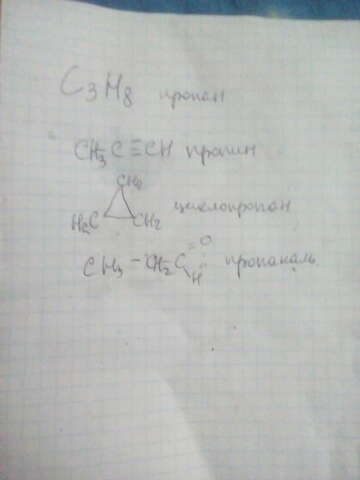 C₃H₈ пропан
CH₃C≡CH пропин
CH₂
H₂C CH₂ циклопропан
CH₃-CH₂C=O H пропаналь